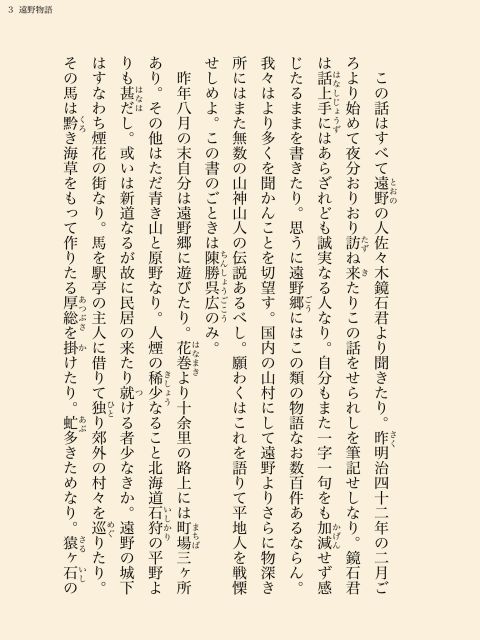 3 遠野物語
この話はすべて遠野の人佐々木鏡石君より聞きたり。昨明治四十二年の二月ご
ろより始めて夜分おりおり訪ね来たりこの話をせられしを筆記せしなり。鏡石君
は話上手にはあらざれども誠実なる人なり。自分もまた一字一句をも加減せず感
じたるままを書きたり。思うに遠野郷にはこの類の物語なお数百件あるならん。
我々はより多くを聞かんことを切望す。国内の山村にして遠野よりさらに物深き
所にはまた無数の山神山人の伝説あるべし。願わくはこれを語りて平地人を戦慄
せしめよ。この書のごときは陳勝呉広のみ。
昨年八月の末自分は遠野郷に遊びたり。花巻より十余里の路上には町場三ヶ所
あり。その他はただ青き山と原野なり。人煙の稀少なること北海道石狩の平野よ
りも甚だし。或いは新道なるが故に民居の来たり就ける者少なきか。遠野の城下
はすなわち煙花の街なり。馬を駅亭の主人に借りて独り郊外の村々を巡りたり。
その馬は黔き海草をもって作りたる厚総を掛けたり。虻多きためなり。猿ヶ石の